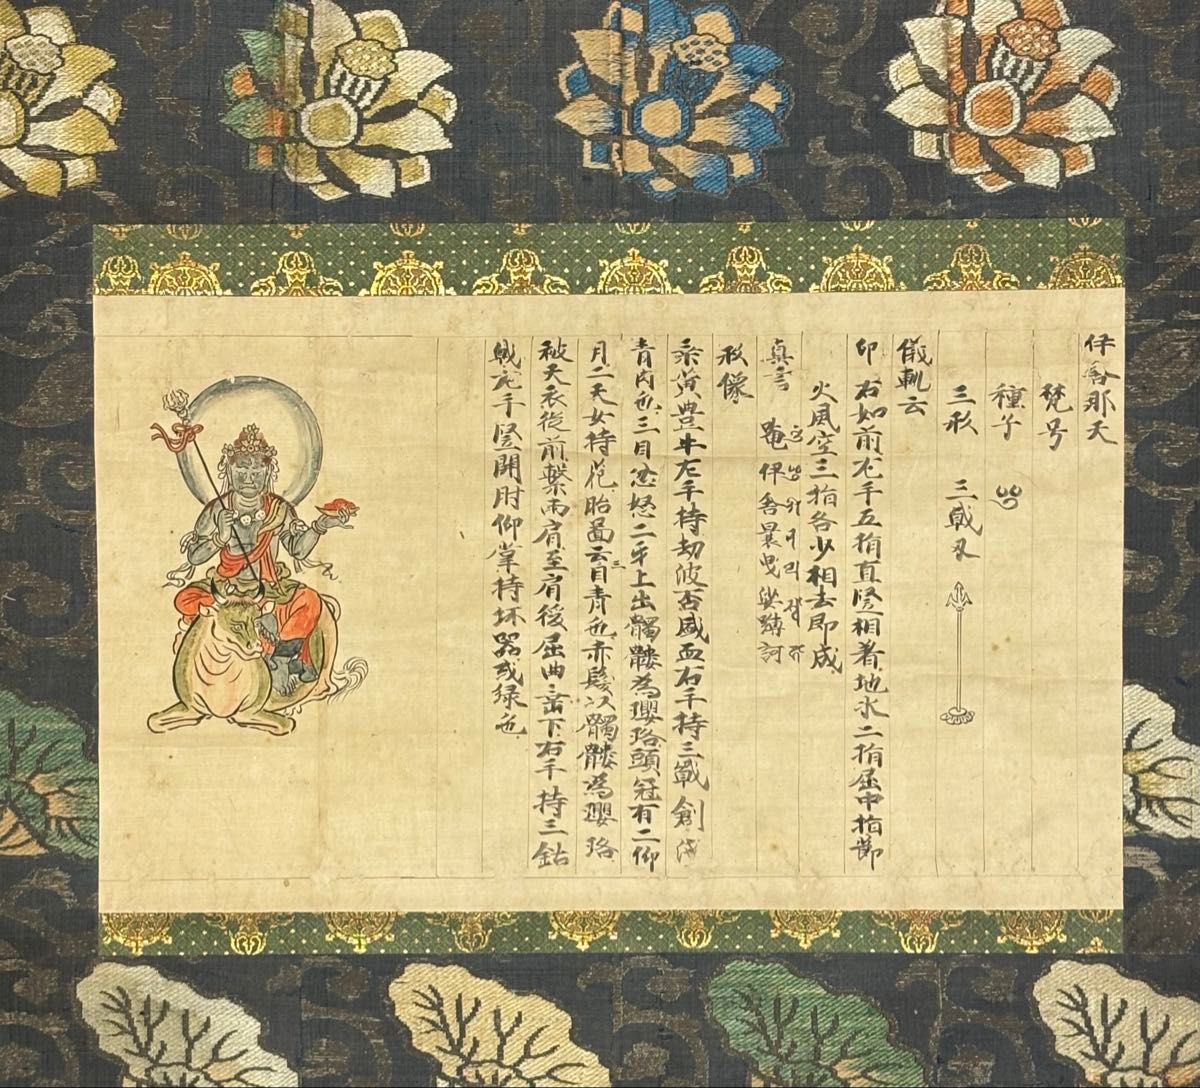 伊舎那天
梵号
種子
三形 三戟叉
儀軌云
印 右如前左手五指直竪相著地水二指屈中指節
火風空三指各少相去即成
真言 唵伊舎曩曳娑嚩訶
形像
乗黄豊牛左手持劫波盃盛血右手持三戟創淺
青肉色三目忿怒二牙上出髑髏為瓔珞頭冠有二仰
月二天女持花胎啚云目三青色赤髪以髑髏為瓔珞
被天衣従前繋両肩至肩後屈曲垂下右手持三鈷
戟左手竪開肘仰掌持坏器或緑色